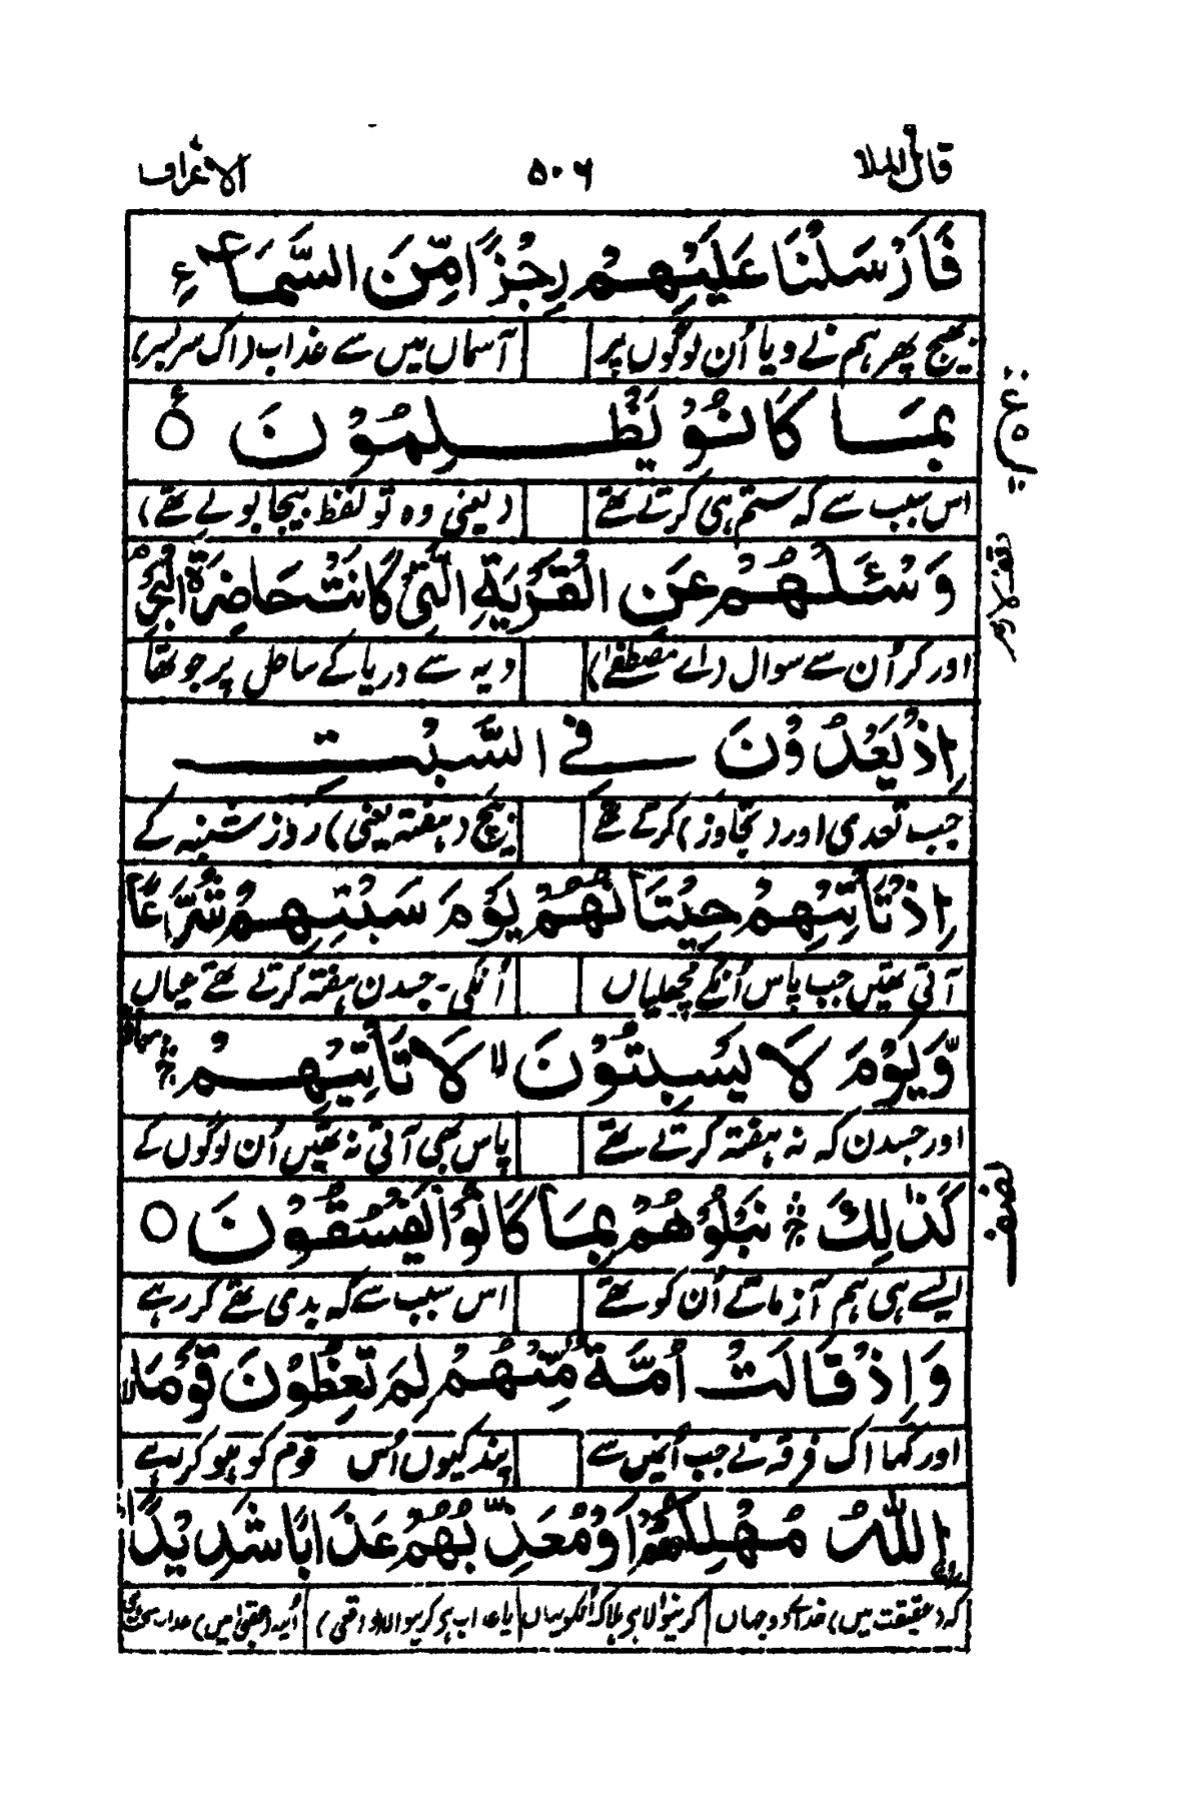 قال الملا ۵۰۶ الاعراف
فَاَرْسَلْنَا عَلَيْهِمْ رِجْزًا مِّنَ السَّمَآءِ
بھیج پھر ہم نے دیا اُن لوگوں پر آسماں میں سے عذاب (اک سربسر)
بِمَا كَانُوْ يَظْلِمُوْنَ ○ ع
اس سبب سے کہ ستم ہی کرتے تھے (یعنی وہ تو لفظ بیجا بولے تھے)
وَسْئَلْهُمْ عَنِ الْقَرْيَةِ الَّتِيْ كَانَتْ حَاضِرَةَ الْبَحْرِ
اور کر اُن سے سوال (اے مصطفےٰ) دیہ سے دریا کے ساحل پر جو تھا
اِذْ يَعْدُوْنَ فِي السَّبْتِ
جب تعدی اور (تجاوز) کرتے تھے بیچ (ہفتہ یعنی) روز شنبہ کے
اِذْ تَأْتِيْهِمْ حِيْتَانُهُمْ يَوْمَ سَبْتِهِمْ شُرَّعًا
آتی تھیں جب پاس اُنکے مچھلیاں اُنکی۔ جسدن ہفتہ کرتے تھے عیاں
وَّيَوْمَ لَا يَسْبِتُوْنَ لا لَا تَأْتِيْهِمْ
اور جسدن کہ نہ ہفتہ کرتے تھے پاس بھی آتی نہ تھیں اُن لوگوں کے
كَذٰلِكَ نَبْلُوْهُمْ بِمَا كَانُوْا يَفْسُقُوْنَ ○
نصف
ایسے ہی ہم آزماتے اُن کو تھے اس سبب سے کہ بدی تھے کر رہے
وَاِذْ قَالَتْ اُمَّةٌ مِّنْهُمْ لِمَ تَعِظُوْنَ قَوْمَا
اور کہا اک فرقہ نے جب اُنیں سے پند کیوں اُس قوم کو ہو کر رہے
اللّٰهُ مُهْلِكُهُمْ اَوْ مُعَذِّبُهُمْ عَذَابًا شَدِيْدًا
کہ (حقیقت میں) خدائے دوجہاں کرنیوالا ہی ہلاک اُنکو یہاں یا عذاب ہی کرنیوالا (واقعی)